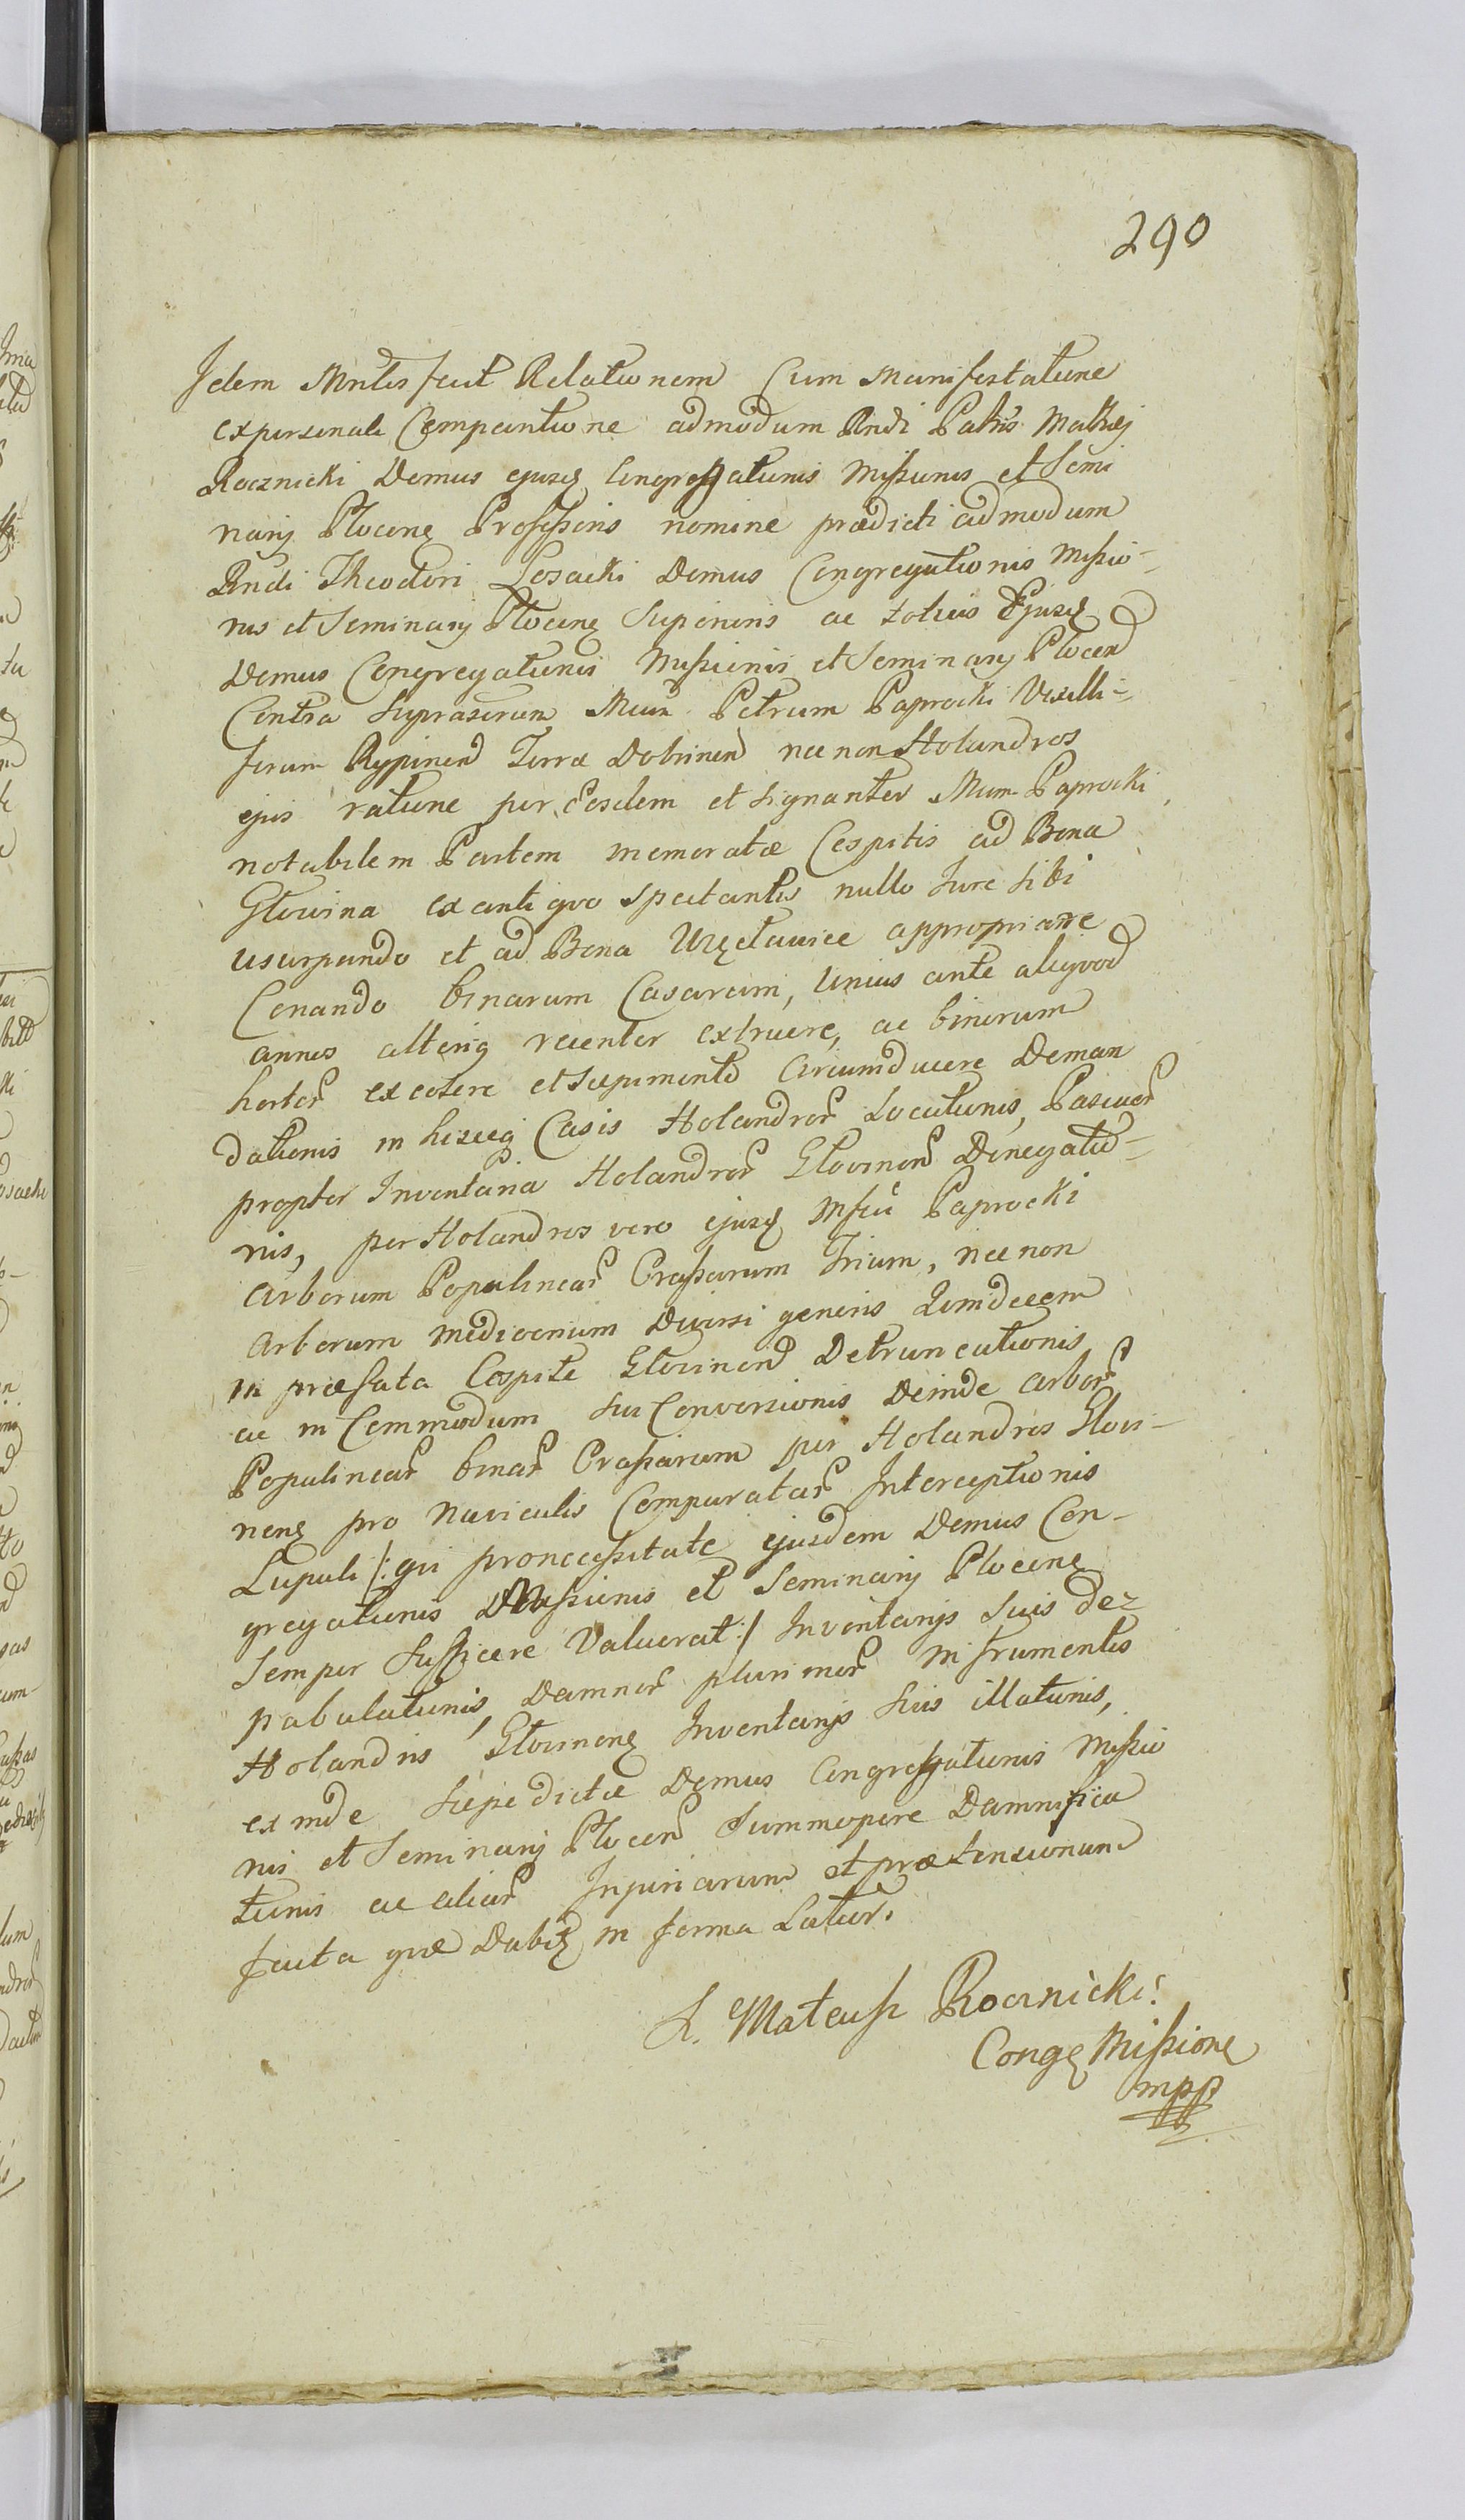 290
Idem Mntlis fecit Relationem Cum Manifestatione
ex personali Comparitione admodum Rndi Patris Mathej
Rocznicki Domus ejusq Congregationis Missionis et Semi
narij Plocenę Professoris nomine prædicti admodum
Rndi Theodori Losacki Domus Congregationis Missio-
nis et Seminarij Plocenę Superioris ac totius Ejusq
Domus Congregationis Missionis et Seminarij Plocen
Contra suprascrum Mum Petrum Paprocki Vexilli-
ferum Rypinen Terræ Dobrinen nec non Holandros
ejus ratione per Eosdem et signanter Mum Paprocki
notabilem Partem memoratæ Cespitis ad Bona
Głowina ex antiqvo spectantis nullo Jure sibi
usurpando et ad Bona Uzęclawice appropriare
Conando binarum Casarum, Unius ante aliqvod
annos alteriq recenter extruere, ac binorum
hortor excolere et Sepimento Circumducere Deman
dationis in hisceq Casis Holandror Locationis, Pascuor
propter Inventaria Holandror Głowinen Denegatio-
nis, per Holandros vero ejusq Mfici Paprocki
Arborum Populinear Crassarum Trium, nec non
Arborum mediocrium Diversi generis Qvindecem
in præfata Cespite Głowinen Detruncationis
ac in Commodum sui Conversionis Deinde Arbor
Populinear binar Crassarum per Holandros Głowi-
nenę pro Naviculis Comparatar Interceptionis
Lupuli /: qvi pro necessitate ejusdem Domus Con-
gregationis Missionis et Seminarij Plocenę
Semper Sufficere Valuerat :/ Inventarijs Suis de-
pabulationis, Damnor plurimor in frumentis
Holandris Głowinenę Inventarijs suis illationis,
exinde Sæpedictæ Domus Congregationis Missio
nis et Seminarij Plocen Summopere Damnifica
tionis ac aliar Injuriarum et prætensionum
facta qvæ Dabit in forma Latior.
X. Mateusz Rocznicki.
Congę Missionę
mpp